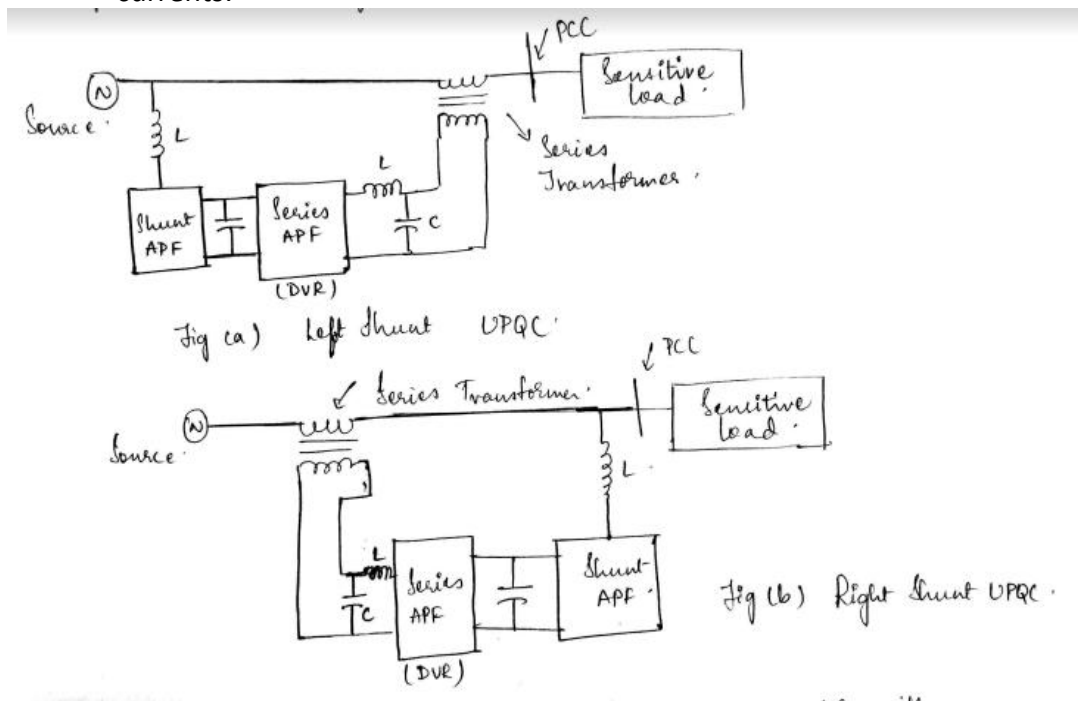 currents.
PCC
Sensitive
load.
N
Source.
L
Series
Transformer.
L
Shunt
APF
Series
APF
C
(DVR)
Fig (a) Left Shunt UPQC.
PCC
Series Transformer.
Sensitive
load.
N
Source.
L
L
Series
APF
Shunt
APF.
C
Fig (b) Right Shunt UPQC.
(DVR)